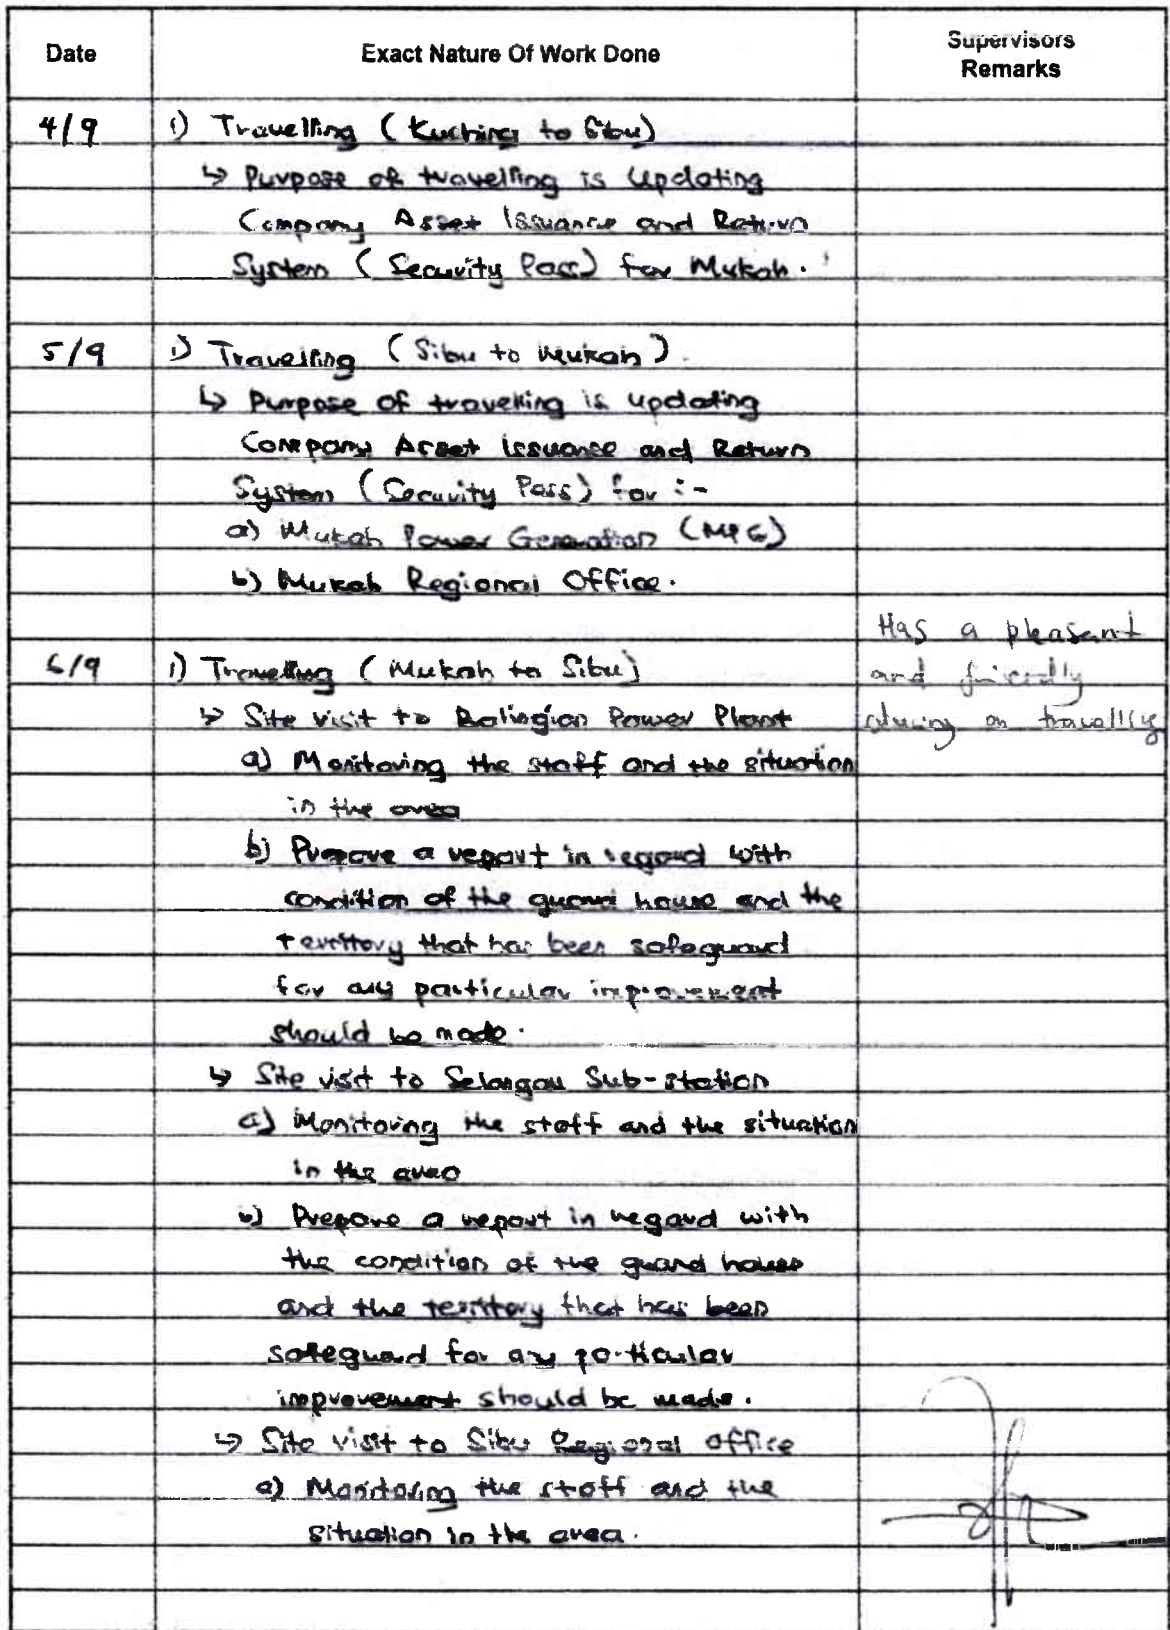 Date Exact Nature Of Work Done Supervisors Remarks
4/9 1) Travelling (Kuching to Sibu)
↳ Purpose of travelling is Updating
Company Asset Issuance and Return
System (Security Pass) for Mukah.
5/9 1) Travelling (Sibu to Mukah)
↳ Purpose of travelling is updating
Company Asset Issuance and Return
System (Security Pass) for :-
a) Mukah Power Generation (MPG)
b) Mukah Regional Office.
6/9 1) Travelling (Mukah to Sibu)
↳ Site visit to Balingian Power Plant
a) Monitoring the staff and the situation
in the area
b) Prepare a report in regard with
condition of the guard house and the
territory that has been safeguard
for any particular improvement
should be made.
↳ Site visit to Selangau Sub-station
a) Monitoring the staff and the situation
in the area
b) Prepare a report in regard with
the condition of the guard house
and the territory that has been
safeguard for any particular
improvement should be made.
↳ Site visit to Sibu Regional office
a) Monitoring the staff and the
situation in the area.
Has a pleasant
and friendly
during on travelling